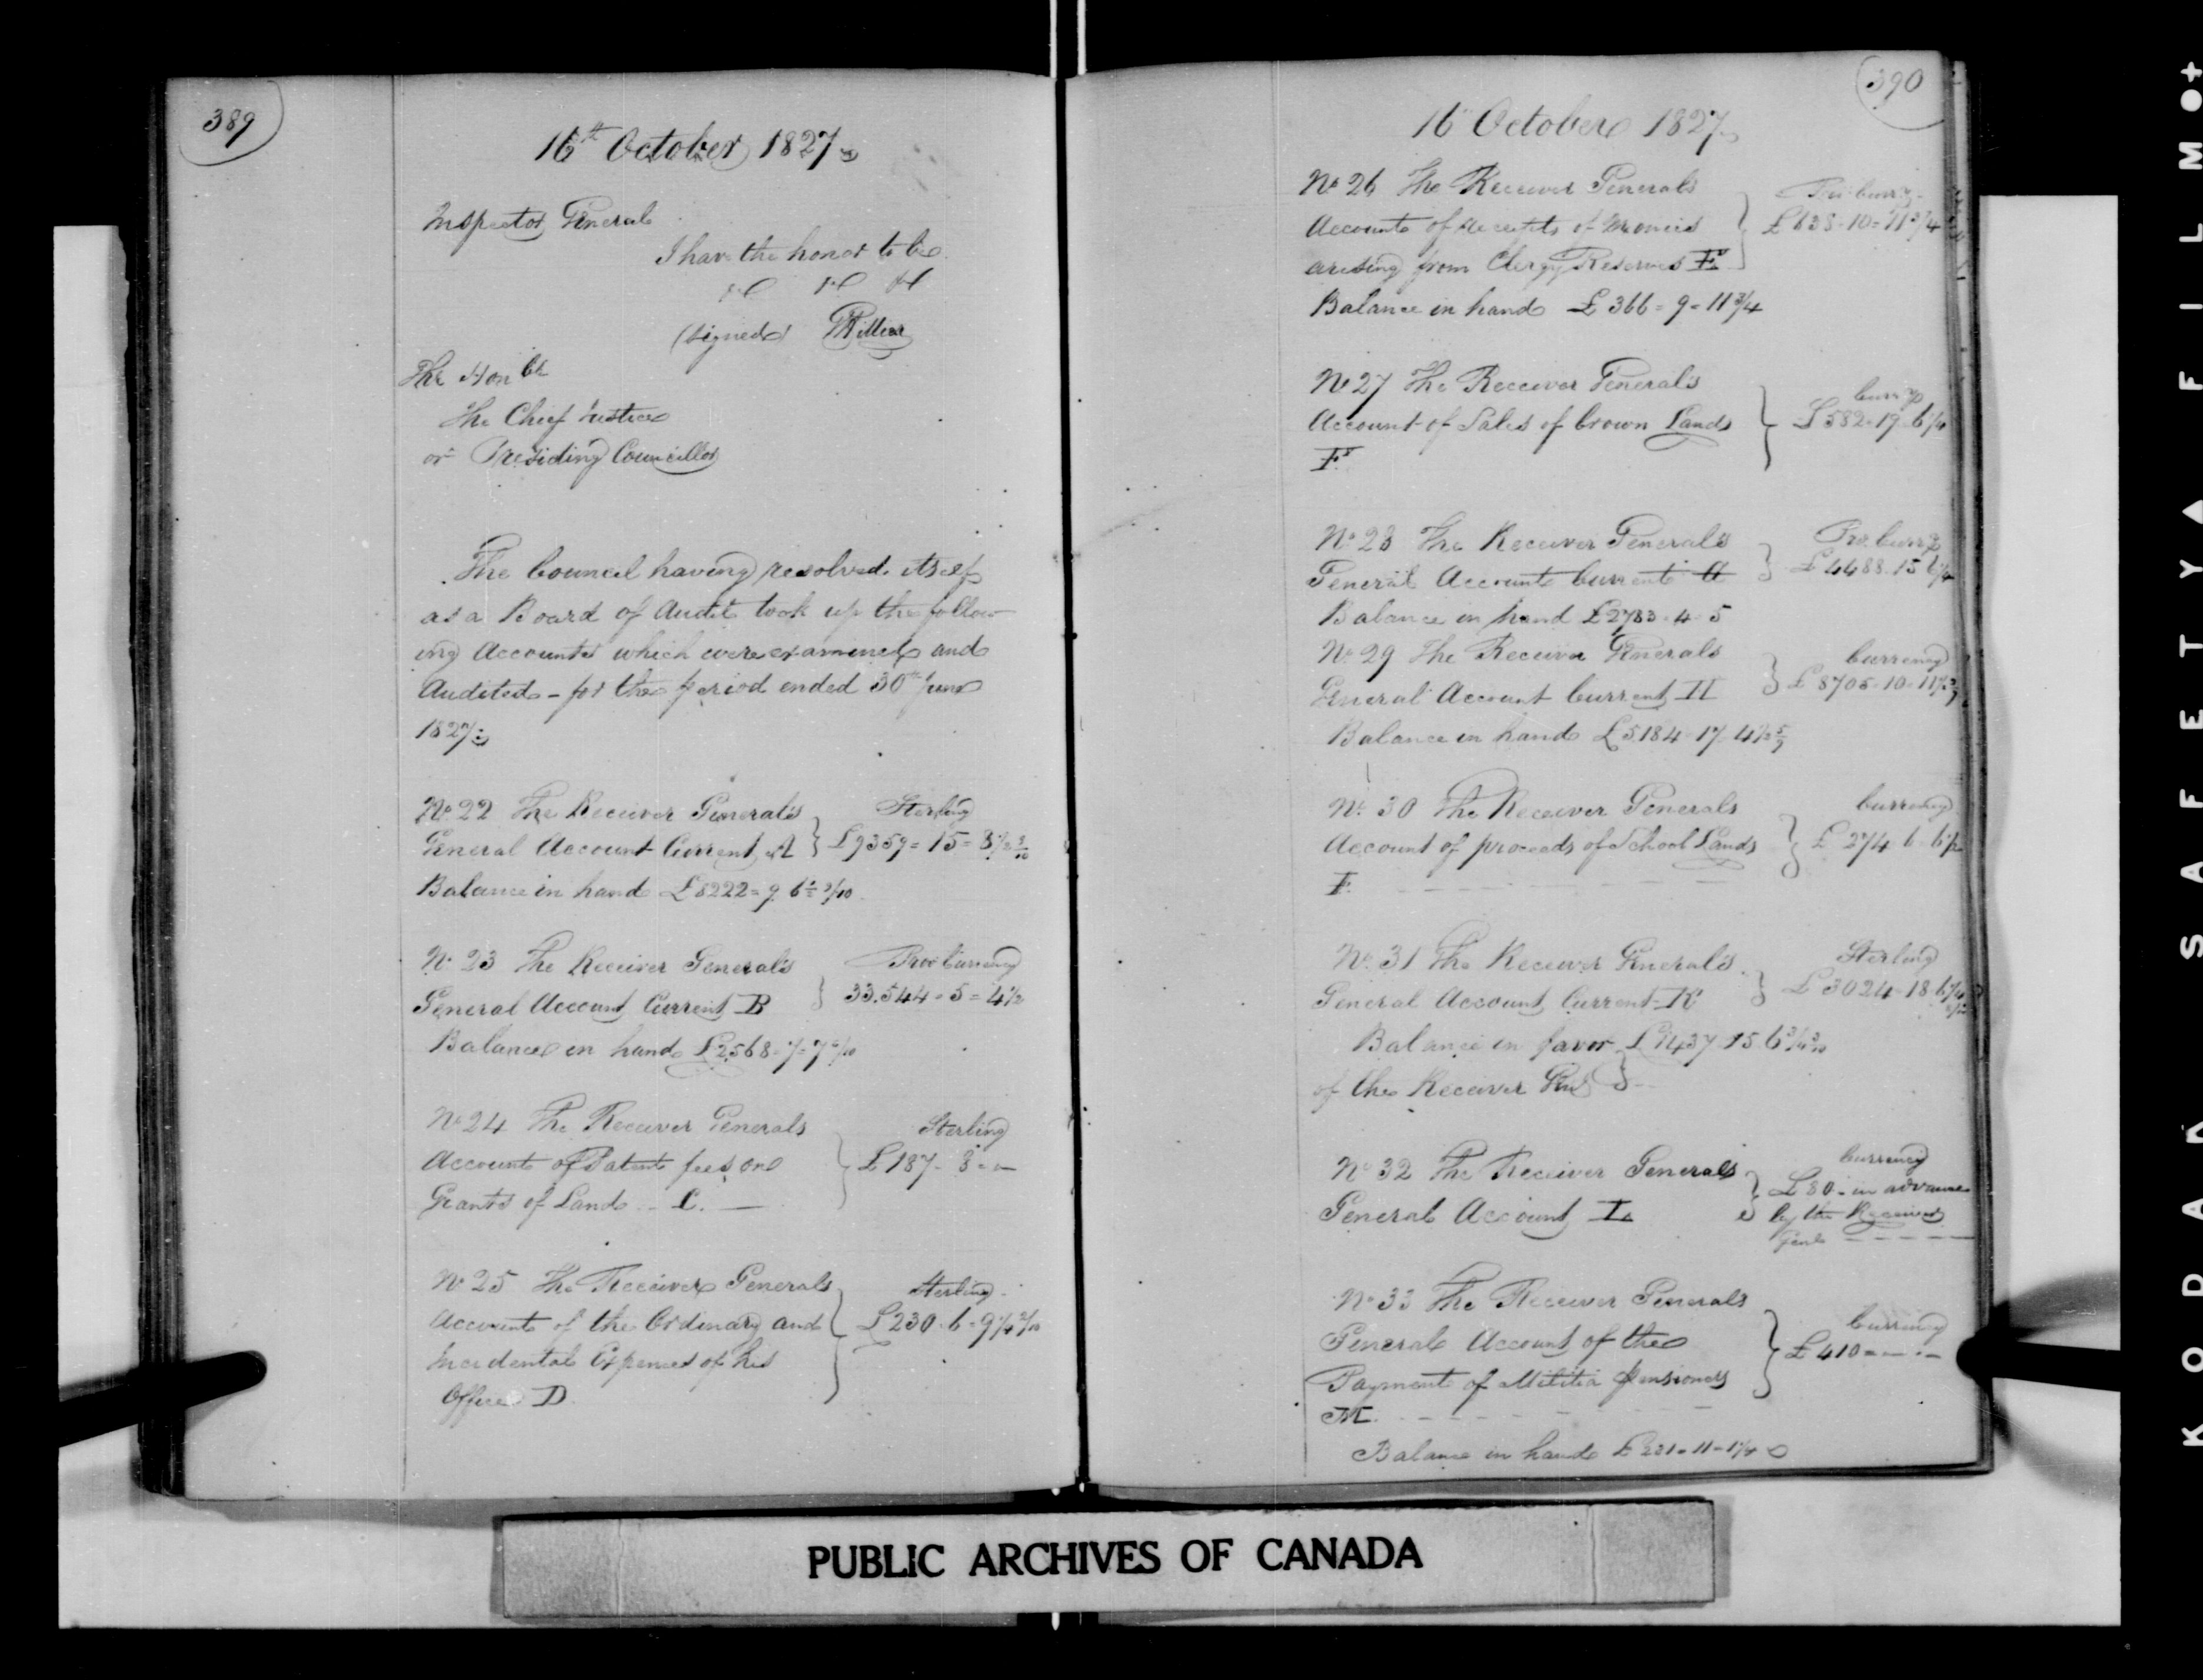 389
16th October 1827
Inspector General
I have the honor to be
&c &c &c
(signed) Hillier
The Honble
The Chief Justice
or Presiding Councillor
The Council having resolved itself
as a Board of Audit took up the follow
ing Accounts which were examined and
Audited - for the period ended 30th June
1827.
No 22 The Receiver Generals Sterling
General Account Current A } £9359=15=8½ 9/10
Balance in hand £8222=9 6½ 9/10
No 23 The Receiver General's Prov Currency
General Account Current B } 33.544=5=4½
Balance in hand £2568=7=7
No 24 The Receiver Generals Sterling
Account of Patent fees on } £187-8=-
Grants of Land - C. -
No 25 The Receiver Generals Sterling
Account of the Ordinary and } £230.6=9¼
Incidental Expences of his
Office D
390
16 October 1827
No 26 The Receiver Generals
Accounts of Receipts of Monies } £638-10=11¾
arising from Clergy Reserves E
Balance in hand £366=9=11¾
No 27 The Receiver General's Curry
Account of Sales of Crown Lands } £582=19
F
No 28 The Receiver General's Pro. Curry
General Accounts Current G } £4488.15
Balance in hand £2783-4-5
No 29 The Receiver Generals Currency
General Account Current H } £8705-10-11½
Balance in hand £5184-17-4½ 5/9
No 30 The Receiver Generals Currency
Account of proceeds of School Lands } £274
No 31 The Receiver General's Sterling
General Account Current K } £3024-18
Balance in favor £1437 15 6¾
of the Receiver Genl }
No 32 The Receiver Generals Currency
General Account L } £80 - in advance
by the Receiver
Genl
No 33 The Receiver Generals
General Account of the Currency
Payment of Militia pensioners } £410
M.
Balance in hand £221=11=1¼
PUBLIC ARCHIVES OF CANADA
KODAK SAFETY FILM